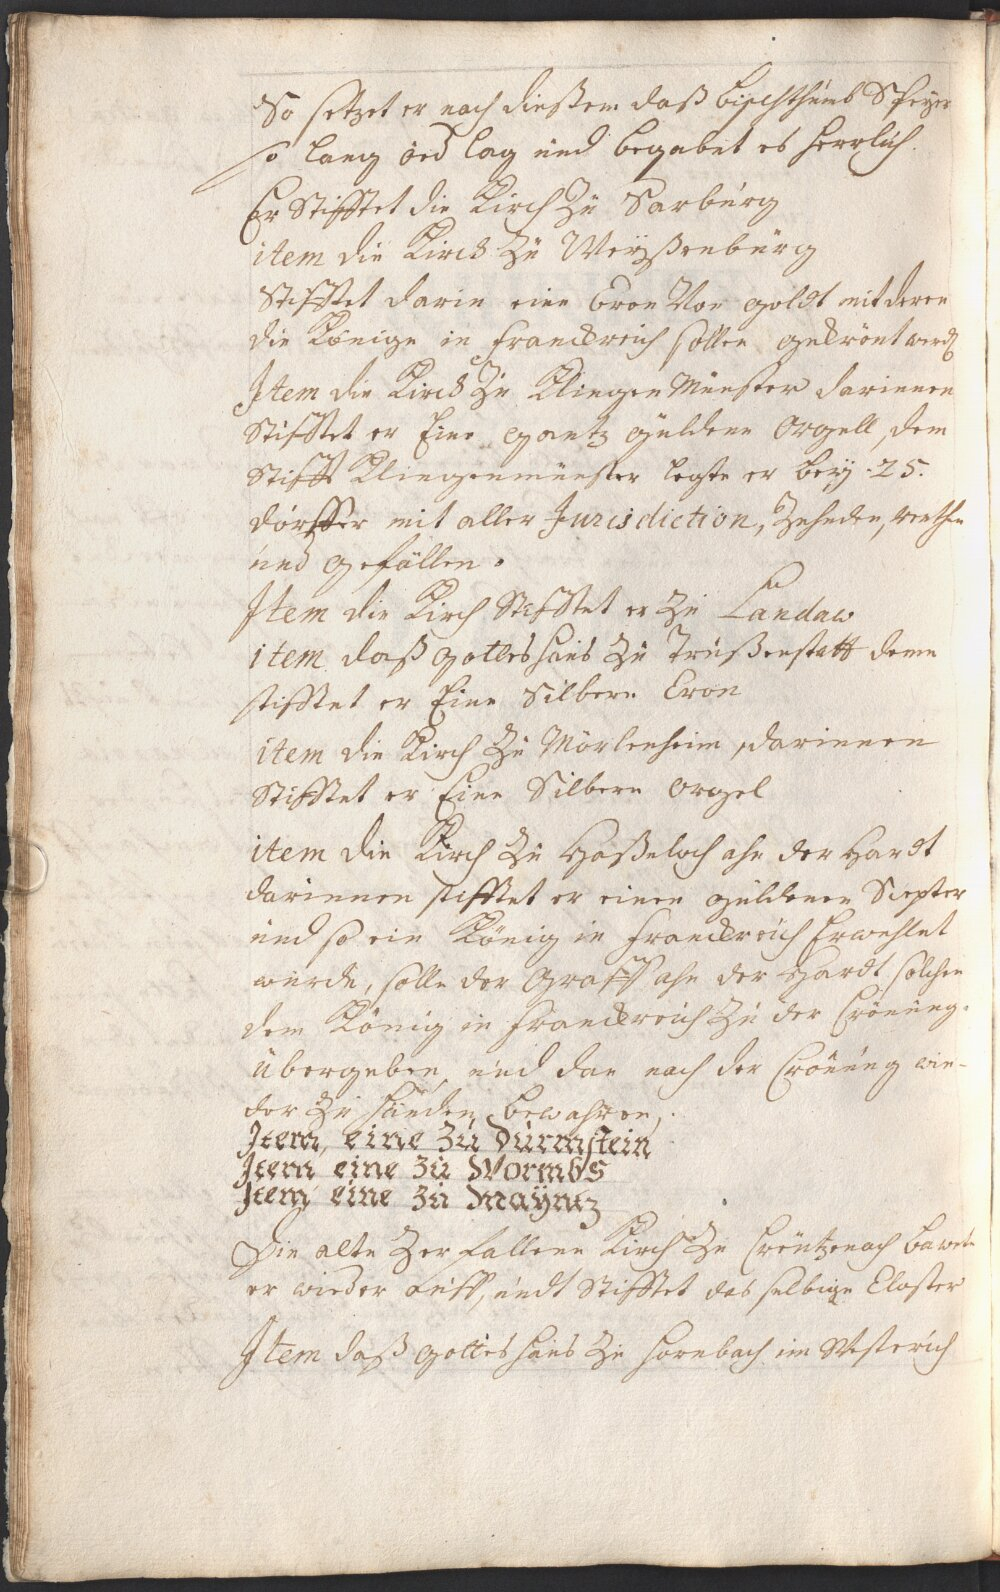 So setzet er nach dießem daß Bischthumb Speyer
so lang öed lag und begabet es herrlich.
Er Stifftet die Kirch Zu Sarburg
item die Kirch Zu Weyßenburg
Stifftet darin eine Cron Von goldt mit deren
die Könige in Franckreich sollen gekrönt werd
Item die Kirch Zu KlingenMünster darinnen
Stifftet er Eine gantz güldene Orgell, dem
Stifft Klingenmünster legte er bey .25.
dörffer mit aller Jurisdiction, Zehnden, renthen
und gefällen.
Item die Kirch Stifftet er Zu Landaw
item daß gotteshaus Zu Trußenstatt deme
stifftet er Eine Silbern Cron
item die Kirch Zu Mörlenheim, darinnen
Stifftet er Eine Silbern orgel
item die Kirch Zu Haßeloch ahn der Hardt
darinnen stifftet er einen güldenen Scepter
und so ein König in Franckreich Erwehlet
würde, solle der Graff ahn der Hardt solchen
dem König in Franckreich Zu der Crönung
übergeben, und dan nach der Crönung wie-
der Zu handen bewahren,
Item, eine zu Durmstein
Item eine zu Wormbs
Item eine zu Mayntz
Die alte Zerfallene Kirch Zu Creutzenach bawete
er wieder auff, undt Stifftet das selbige Closter
Item daß gotteshaus Zu Hornbach im Westerich